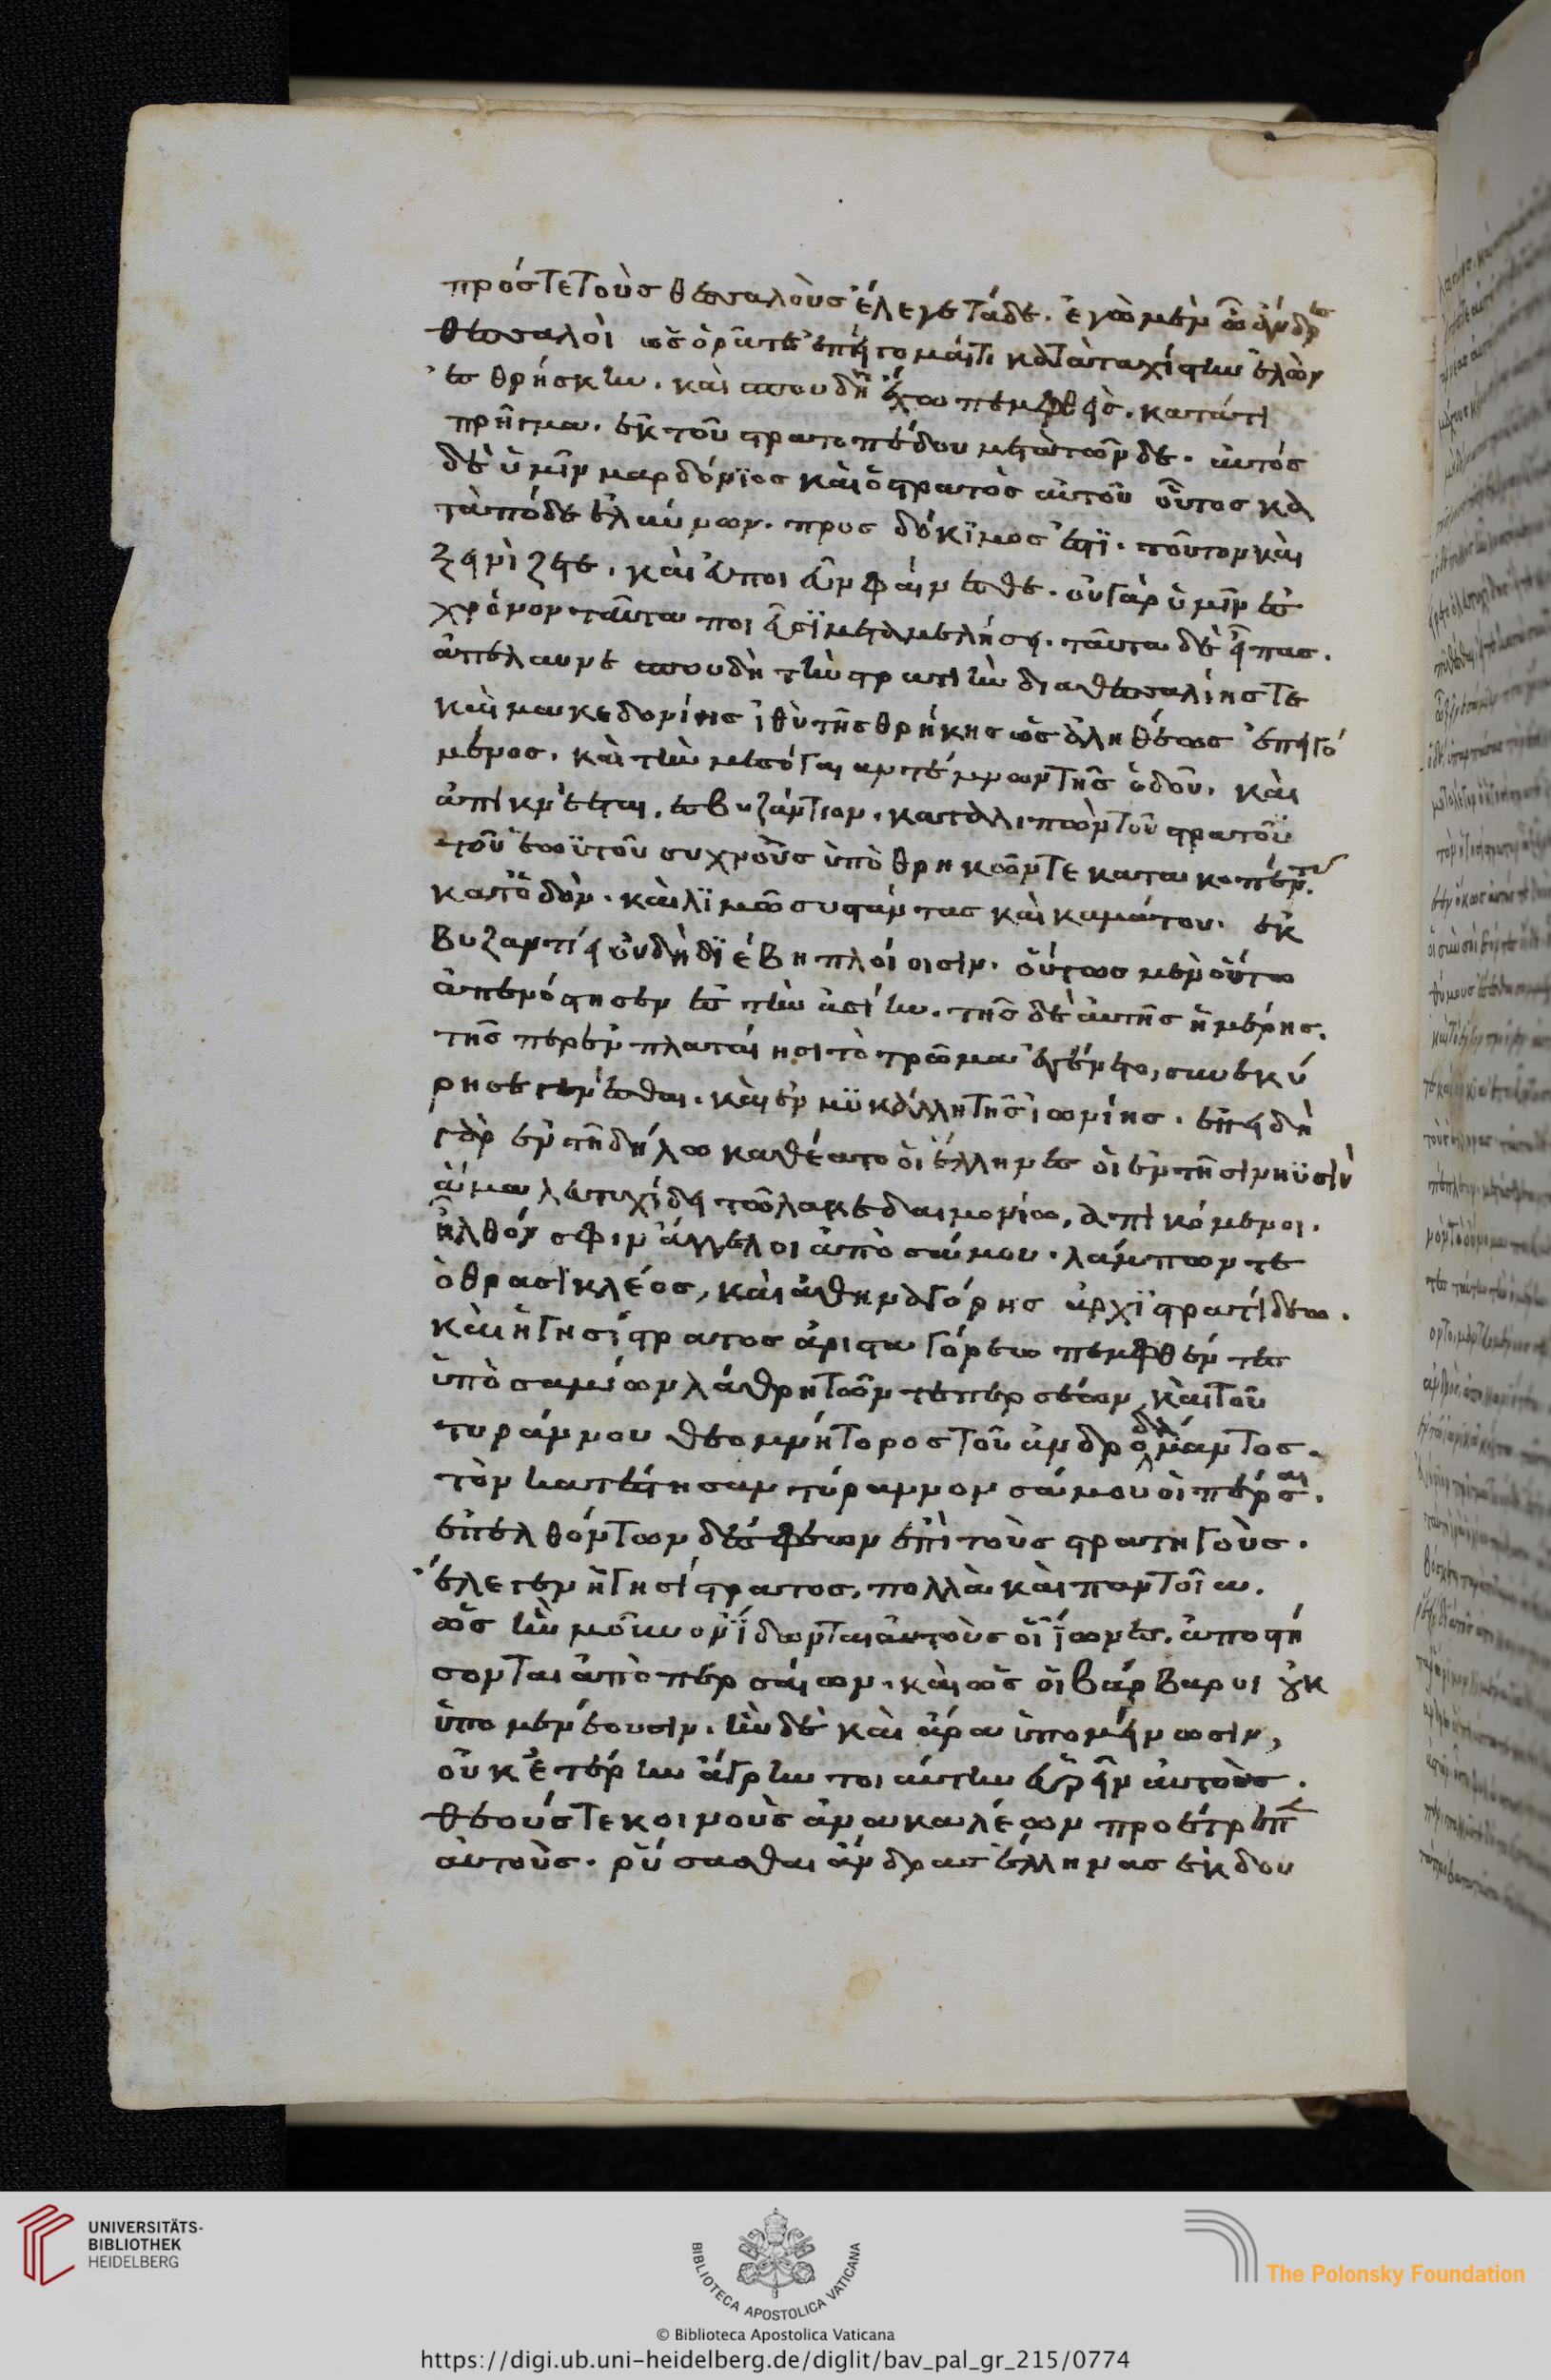 πρόστετοὺσ θεσσαλοὺσ ἔλεγε τάδε. ἐγὼ μὲν ὦ ἄνδρες
θεσσαλοὶ ὡς ὁρᾶτε ἐπείγομαί τε κατὰ ταχίστην ἐλῶν
ἐς θρήκην. καὶ σπουδὴν ἔχω πεμφθεὶς. κατά τι
πρῆγμα. ἐκ τοῦ στρατοπέδου μετὰ τῶνδε. αὐτός
δὲ ὑμῖν μαρδόνϊος καὶ ὁ στρατὸς αὐτοῦ οὗτος κα
τὰ πόδε ἐλαύνων. προς δόκϊμος ἐστϊ. τοῦτον καὶ
ξεινίζετε. καὶ εὖ ποιεῦν φαίνεσθε. οὐ γὰρ ὑμῖν ἐς
χρόνον ταῦτα ποιεῦσϊ μεταμελήσει. ταῦτα δὲ εἴπας.
ἀπέλαυνε σπουδῆ τὴν στρατιὴν δια θεσσαλίης τε
καὶ μακεδονίης ἰθὺ τῆς θρήκης ὡς ἀληθέως ἐπειγό
μενος. καὶ τὴν μεσόγαιαν τέμνων τῆς ὁδοῦ. καὶ
ἀπικνέεται. ἐς βυζάντιον. καταλιπὼν τοῦ στρατοῦ
τοῦ ἑωϋτοῦ συχνοὺς ὑπὸ θρηκῶν τε κατακοπέντας
κατ' ὁδὸν. καὶ λϊμῶ συστάντας καὶ καμάτου. ἐκ
βυζαντίου δὴ δϊέβη πλοίοισιν. οὕτως μὲν οὕτω
ἀπενόστησεν ἐς τὴν ἀσίην. τῆς δὲ αὐτῆς ἡμέρης.
τῆς περ ἐν πλαταιῆσι τὸ τρῶμα ἐγένετο, συνεκύ
ρησε γενέσθαι. καὶ ἐν μϋκάλλη τῆς ἰωνίης. ἐπειδὴ
γὰρ ἐν τῆ δήλω κατέατο οἱ ἕλληνες οἱ ἐν τῆσι νηϋσὶν
ἅμα λευτυχίδη τῶ λακεδαιμονίω, ἀπικόμενοι.
ἦλθόν σφιν ἄγγελοι ἀπὸ σάμου. λάμπων τε
ὁ θρασϊκλέος, καὶ ἀθηναγόρης ἀρχϊστρατίδεω.
καὶ ἡγησίστρατος ἀρισταγόρεω πεμφθέντες
ὑπὸ σαμίων λάθρη τῶν τε περσέων, καὶ τοῦ
τυράννου θεομήτορος τοῦ ἀνδροδάμαντος.
τὸν κατέστησαν τύραννον σάμου οἱ πέρσαι.
ἐπελθόντων δέ σφέων ἐπὶ τοὺς στρατηγοὺς.
ἔλεγεν ἡγησίστρατος, πολλὰ καὶ παντοῖα.
ὡς ἢν μοῦνον ϊδωνται αὐτοὺς οἱ ϊωνες. ἀποστή
σονται ἀπὸ περσέων. καὶ ὡς οἱ βάρβαροι οὐκ
ὑπομενέουσιν. ἢν δὲ καὶ ἄρα ὑπομείνωσιν,
οὐκ ἑτέρην ἄγρην τοιαύτην εὑρεῖν αὐτοὺς.
θεούς τε κοινοὺς ἀνακαλέων προέτρεπε
αὐτοὺς. ῥύσασθαι ἄνδρας ἕλληνας ἐκ δου
UNIVERSITÄTS-
BIBLIOTHEK
HEIDELBERG
BIBLIOTECA APOSTOLICA VATICANA
The Polonsky Foundation
© Biblioteca Apostolica Vaticana
https://digi.ub.uni-heidelberg.de/diglit/bav_pal_gr_215/0774